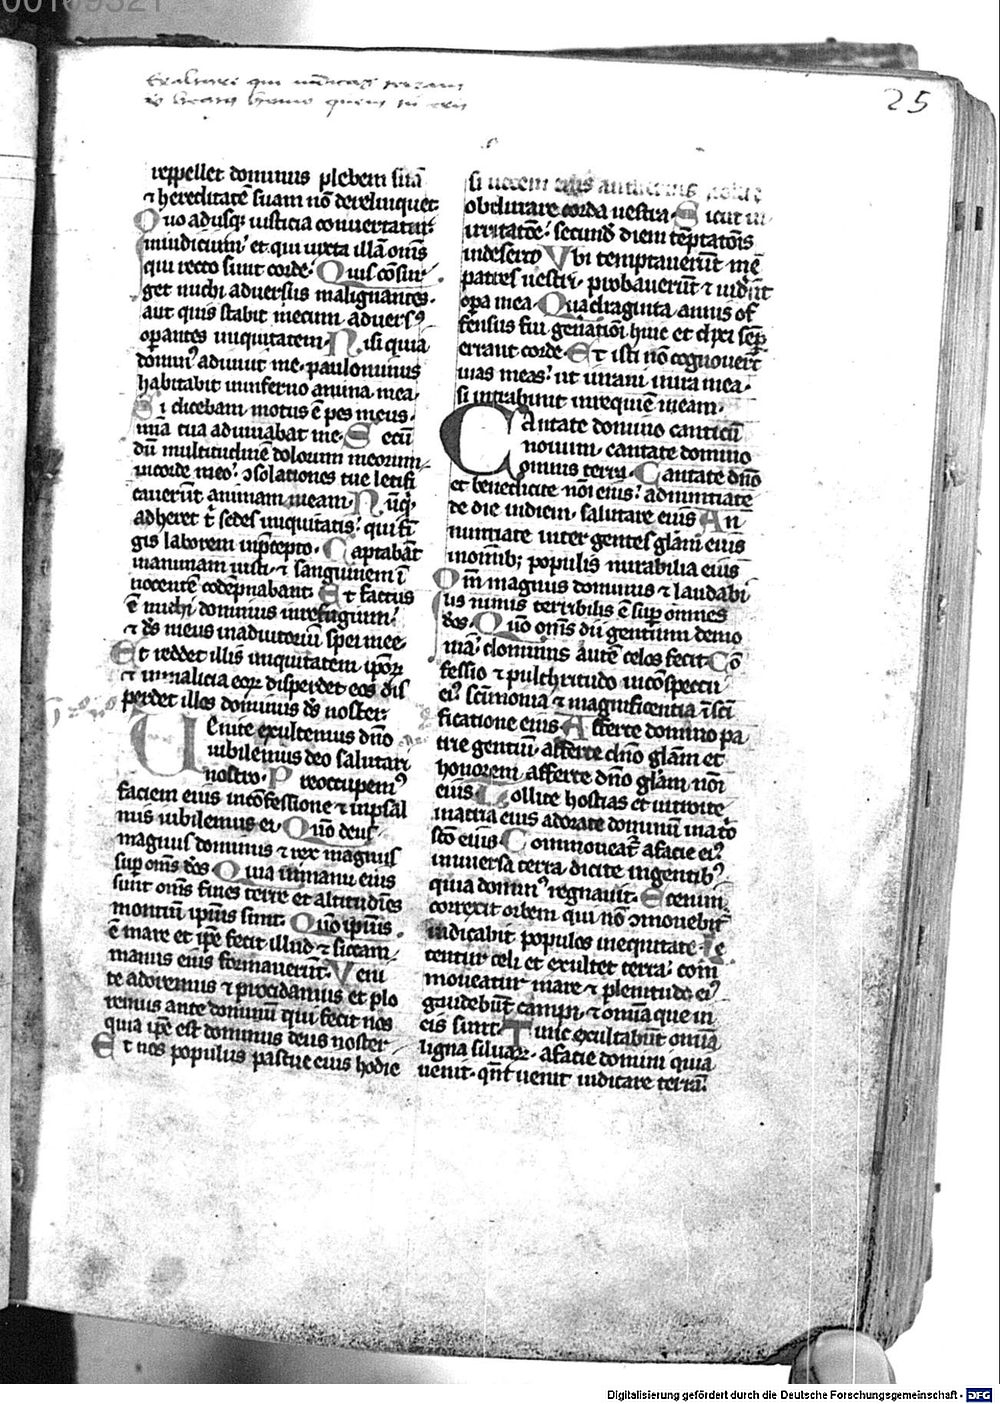 00109321
25
reppellet dominus plebem suā
⁊ hereditatē suam nō derelinquet
Quo adusq; iusticia conuertatur
iniudicium et qui iuxta illā om̄s
qui recto sunt corde Quis cōsur
get michi aduersus malignantes.
aut quis stabit mecum aduersꝯ
opantes iniquitatem Nisi quia
dominꝰ adiuuit me. paulominus
habitabit ininferno anima mea.
Si dicebam motus ē pes meus.
mīa tua adiuuabat me. Secū
dū multitudinē dolorum meorum
incorde meo: ↄsolationes tue letifi
cauerūt animam meam Nūq̄.
adheret t̄ sedes iniquitatis: qui fī
gis laborem inp̄cepto. Captabāt
inanimam iusti. ⁊ sanguinem ī
nocentē codēpnabant Et factus
ē michi dominus inrefugium:
⁊ ds̄ meus inadiutoriū spei mee
Et reddet illis iniquitatem ipoꝝ
⁊ inmalicia eoꝝ disperdet eos dis
perdet illos dominus ds̄ noster
Uenite exultemus dn̄o
iubilemus deo salutari
nostro. Preoccupemꝰ
faciem eius incōfessione ⁊ inpsal
mis iubilemus ei Quō deus
magnus dominus ⁊ rex magnus
sup om̄s de̅os Quia inmanu eius
sunt om̄s fines terre et altitudīes
montiū ipsius sunt Quō ipsius
ē mare et ip̄e fecit illud ⁊ siccam
manus eius formauerūt Veni
te adoremus ⁊ procidamus et plo
remus ante dominū qui fecit nos
quia ip̄e est dominus deus noster
Et nos populus pascue eius hodie
si uocem eius audieritis nolite
obdurare corda uestra Sicut in
irritatōe: secund̄ diem teptatōis
indeserto Vbi temptauerūt mē
patres uestri. probauerūt ⁊ uiderūt
opa mea. Quadraginta annis of
fensus fui gen̄ationi huic et dixi semp̄
errant corde Et isti nō cognouerūt
uias meas: ut iuraui inira mea.
si intrabunt inrequiē meam.
Cantate domino canticū
nouum. cantate domino
omnis terra. Cantate dn̄o
et benedicite nōi eius: adnuntiate
de die indiem. salutare eius An
nuntiate inter gentes glām eius
inom̄ib; populis mirabilia eius
Qm̄ magnus dominus ⁊ laudabi
lis nimis terribilis ē sup omnes
de̅os. Quō om̄s dii gentium demo
nia: dominus autē celos fecit Cō
fessio ⁊ pulchritudo incōspectu
eiꝰ scīmonia ⁊ magnificentia īsc̄i
ficatione eius Afferte domino pa
trie gentiū. afferte dn̄o glām et
honorem. afferte dn̄o glām nōi
eius Tollite hostias et introite
inatria eius adorate dominū inatō
sc̄o eius Commoueat̄ afacie eiꝰ
uniuersa terra. dicite ingentibꝰ
quia dominꝰ regnauit. Etenim
correxit orbem qui nō ↄmouebit̄
iudicabit populos inequitate Le
tentur celi et exultet terra. com
moueatur mare ⁊ plenitudo eiꝰ
gaudebūt campi. ⁊ omīa que in
eis sunt: Tunc exultabūt omīa
ligna siluaꝝ. afacie domini quia
uenit. qn̄t uenit iudicare terrā.
Digitalisierung gefördert durch die Deutsche Forschungsgemeinschaft - DFG